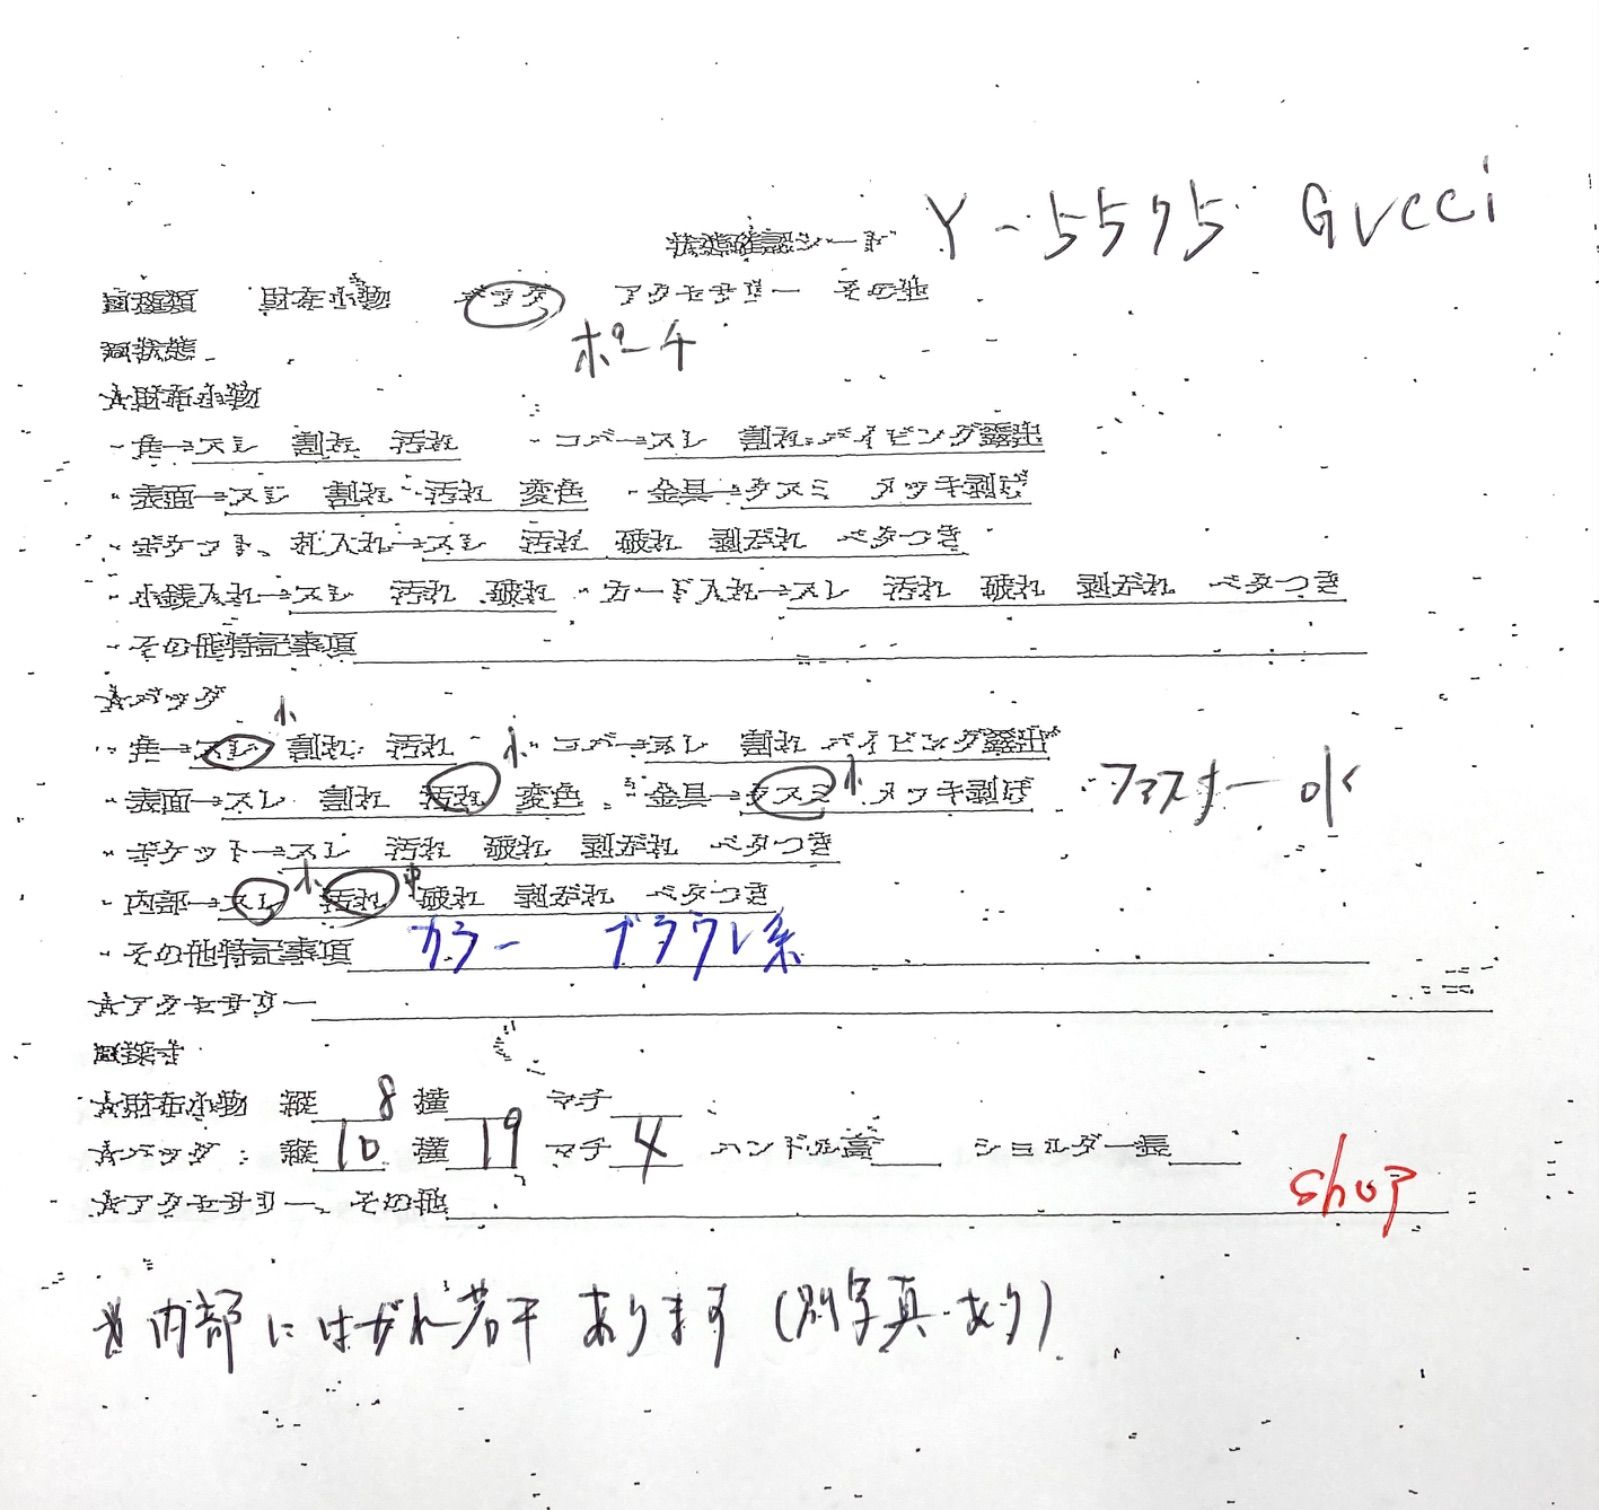 状態確認シート Y-5575 Gucci
■種類 財布小物 バッグ アクセサリー その他
ポーチ
■状態
★財布小物
・角→スレ 割れ 汚れ ・コバ→スレ 割れ パイピング露出
・表面→スレ 割れ 汚れ 変色 ・金具→クスミ メッキ剥げ
・ポケット、札入れ→スレ 汚れ 破れ 剥がれ ベタつき
・小銭入れ→スレ 汚れ 破れ ・カード入れ→スレ 汚れ 破れ 剥がれ ベタつき
・その他特記事項
★バッグ
・角→スレ 小 割れ 汚れ ・コバ→スレ 割れ パイピング露出
・表面→スレ 割れ 汚れ 小 変色 ・金具→クスミ 小 メッキ剥げ ・ファスナー OK
・ポケット→スレ 汚れ 破れ 剥がれ ベタつき
・内部→スレ 小 汚れ 中 破れ 剥がれ ベタつき
・その他特記事項 カラー ブラウン系
★アクセサリー
■採寸
★財布小物 縦 8 横 マチ
★バッグ：縦 10 横 19 マチ 4 ハンドル高 ショルダー長
★アクセサリー、その他
shop
内部にはがれ若干あります(別写真あり)